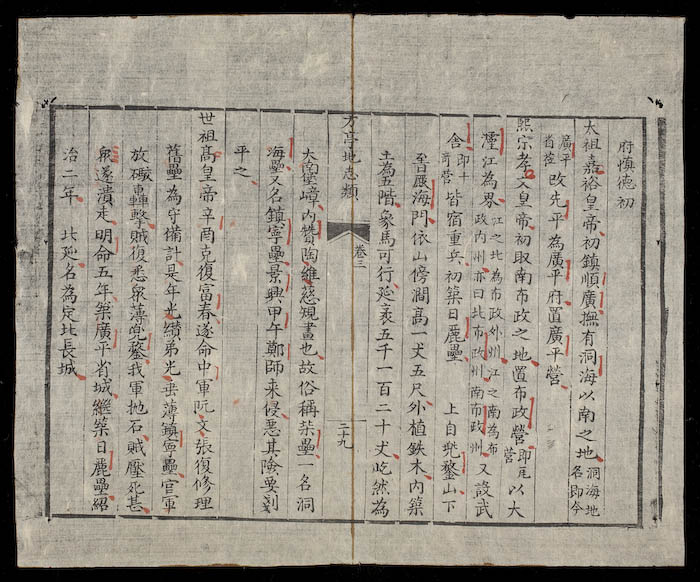 府慎德初
太祖嘉裕皇帝初鎮順廣撫有洞海以南之地洞海地名即今
廣平省莅改先平為廣平府置廣平營
熙宗孝文皇帝初取南布政之地置布政營即尾營以大
𤅷江為界江之北為布政外州江之南為布政内州亦曰北布政州南布政州又設武
舍即十奇營皆宿重兵初築日麗壘上自兜鍪山下
至歷海門依山傍澗高一丈五尺外植鉄木内築
土為五階象馬可行延袤五千一百二十丈屹然為
方亭地志類
卷三
二十九
大南堡嶂内贊陶維慈規畫也故俗稱柴壘一名洞
海壘又名鎮寧壘景興甲午鄭師来侵悪其險要剗
平之
世祖高皇帝辛酉克復富春遂命中軍阮文張復修理
舊壘為守備計是年光纘弟光垂薄鎮寧壘官軍
放礟轟擊賊復悉衆薄兜鍪我軍抛石賊壓死甚
衆遂潰走明命五年築廣平省城継築日麗壘紹
治二年 北延名為定北長城